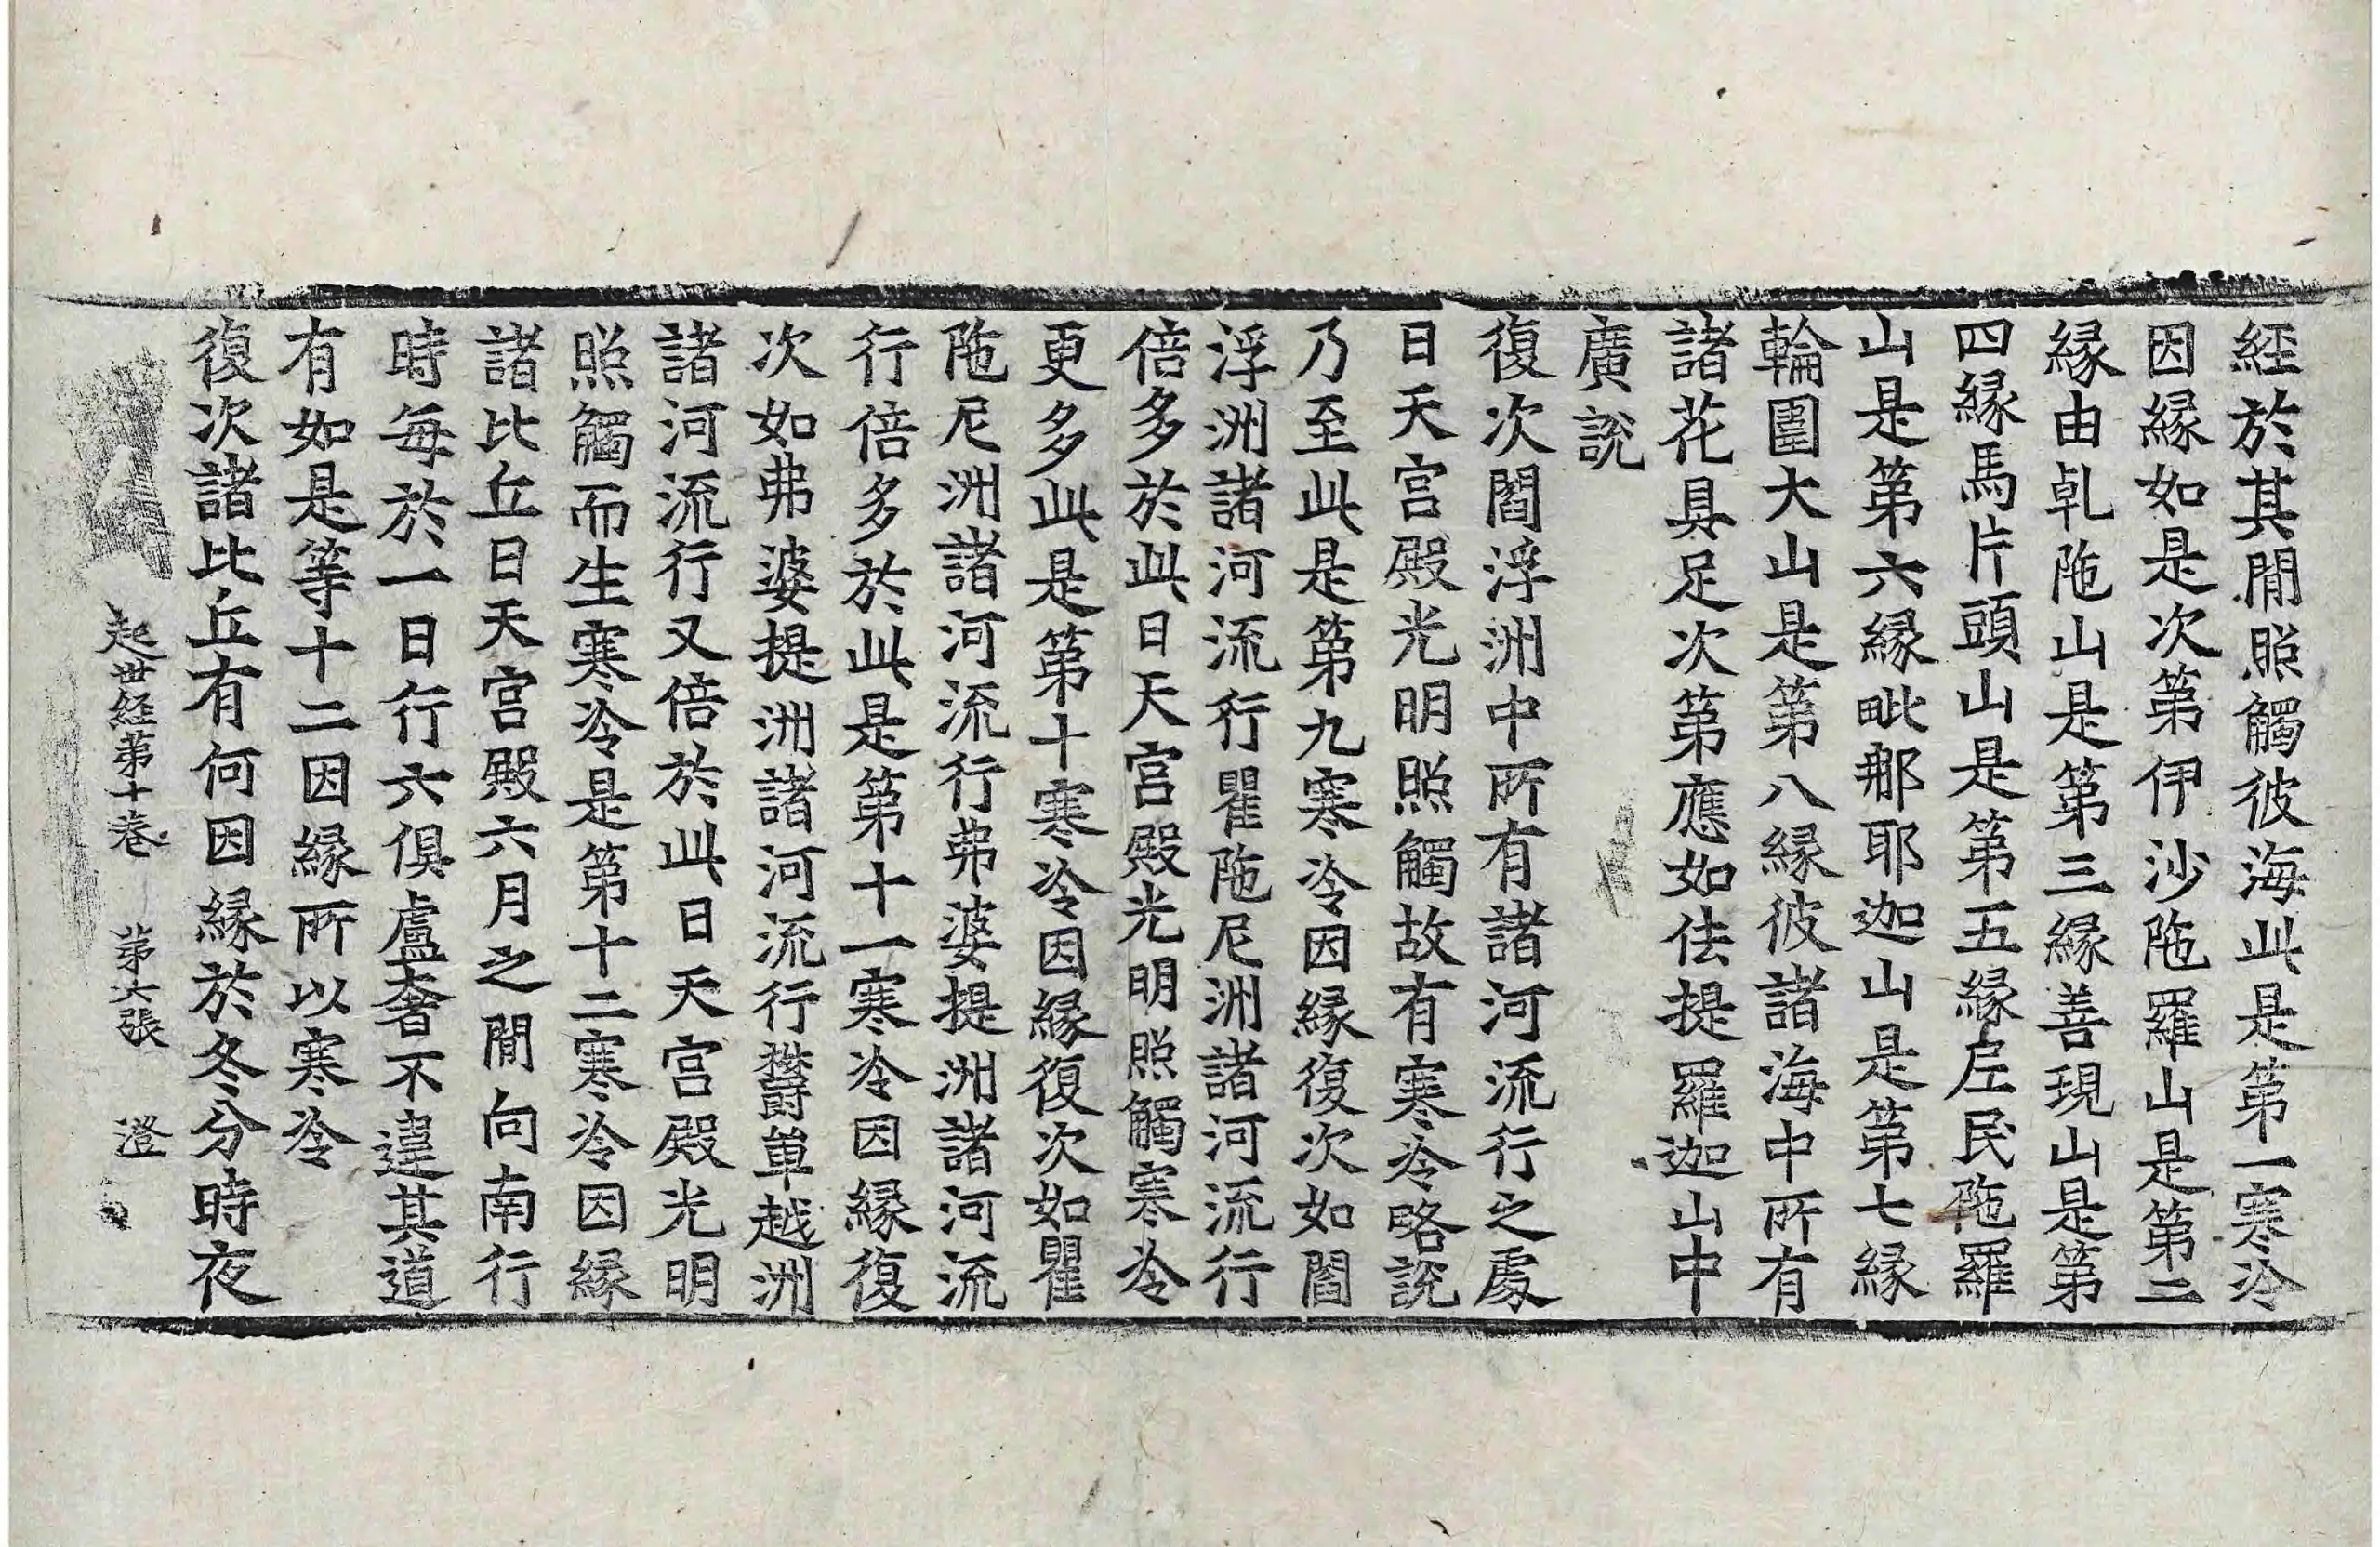 經於其閒照觸彼海此是第一寒冷
因緣如是次第伊沙陁羅山是第二
緣由乹陁山是第三緣善現山是第
四緣馬片頭山是第五緣尼民陁羅
山是第六緣毗那耶迦山是第七緣
輪圍大山是第八緣彼諸海中所有
諸花具足次第應如佉提羅迦山中
廣說
復次閻浮洲中所有諸河流行之處
日天宮殿光明照觸故有寒冷略說
乃至此是第九寒冷因緣復次如閻
浮洲諸河流行瞿陁尼洲諸河流行
倍多於此日天宮殿光明照觸寒冷
更多此是第十寒冷因緣復次如瞿
陁尼洲諸河流行弗婆提洲諸河流
行倍多於此是第十一寒冷因緣復
次如弗婆提洲諸河流行欝單越洲
諸河流行又倍於此日天宮殿光明
照觸而生寒冷是第十二寒冷因緣
諸比丘日天宮殿六月之閒向南行
時每於一日行六俱盧奢不違其道
有如是等十二因緣所以寒冷
復次諸比丘有何因緣於冬分時夜
起世經第十卷 第六張 澄